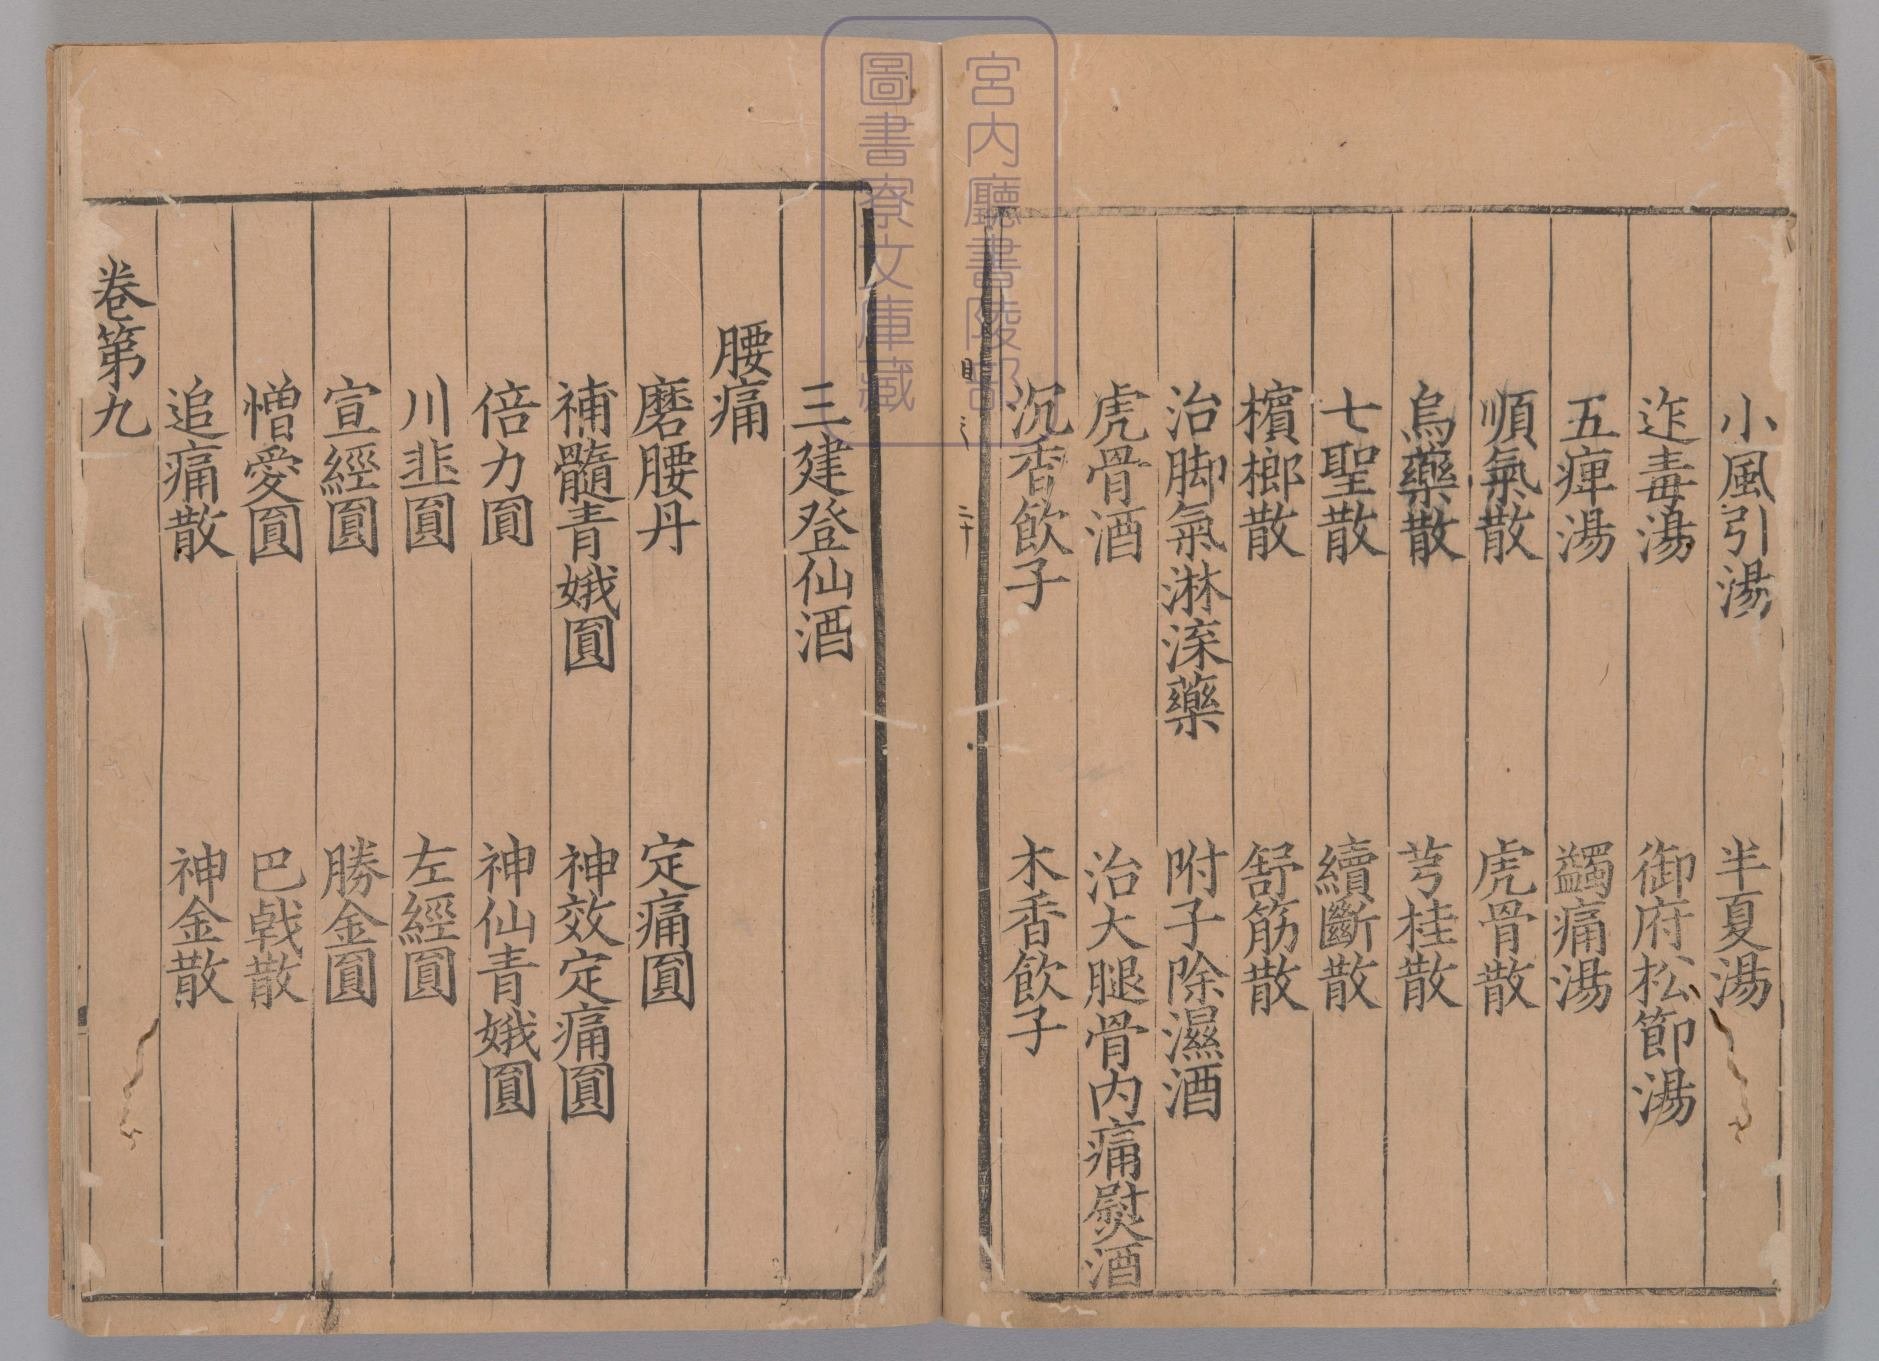 小風引湯　半夏湯
迮毒湯　御府松節湯
五痺湯　蠲痛湯
順氣散　虎骨散
烏藥散　芎桂散
七聖散　續斷散
檳榔散　舒筋散
治脚氣淋渫藥　附子除濕酒
虎骨酒　治大腿骨内痛熨酒
沉香飲子　木香飲子
三建登仙酒
腰痛
磨腰丹　定痛圓
補髓青娥圓　神效定痛圓
倍力圓　神仙青娥圓
川韭圓　左經圓
宣經圓　勝金圓
憎愛圓　巴戟散
追痛散　神金散
卷第九
宮内廳書陵部
圖書寮文庫藏